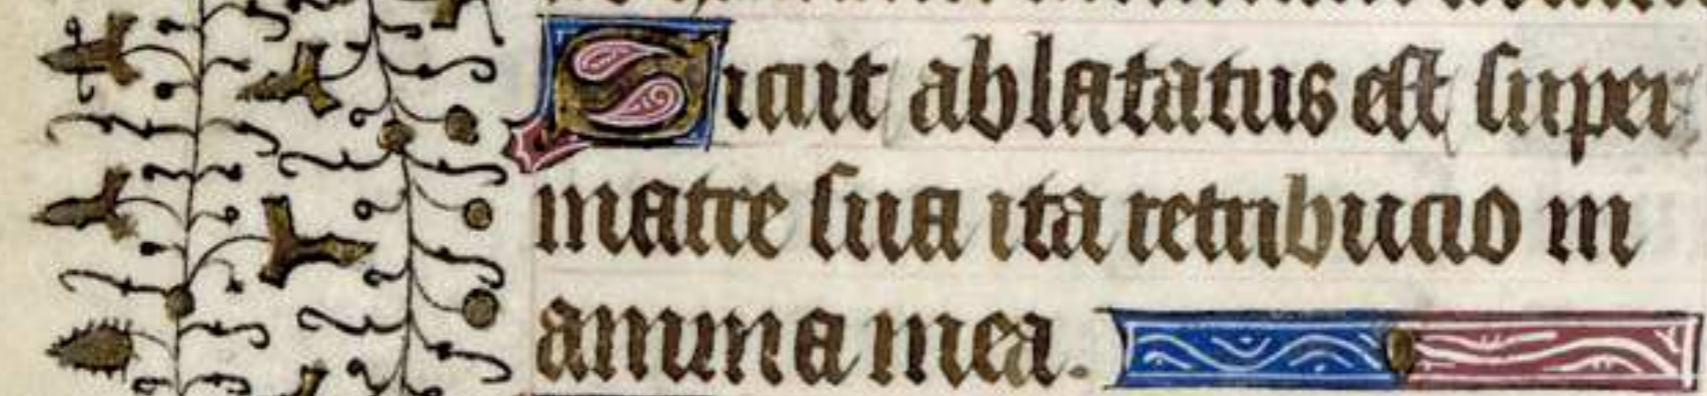 Sicut ablatatus est super
matre sua ita retribucio in
anima mea.